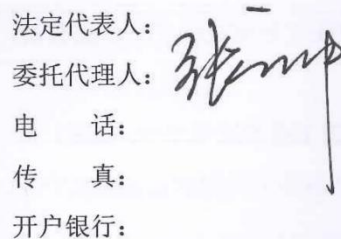 法定代表人：
委托代理人：
电 话：
传 真：
开户银行：